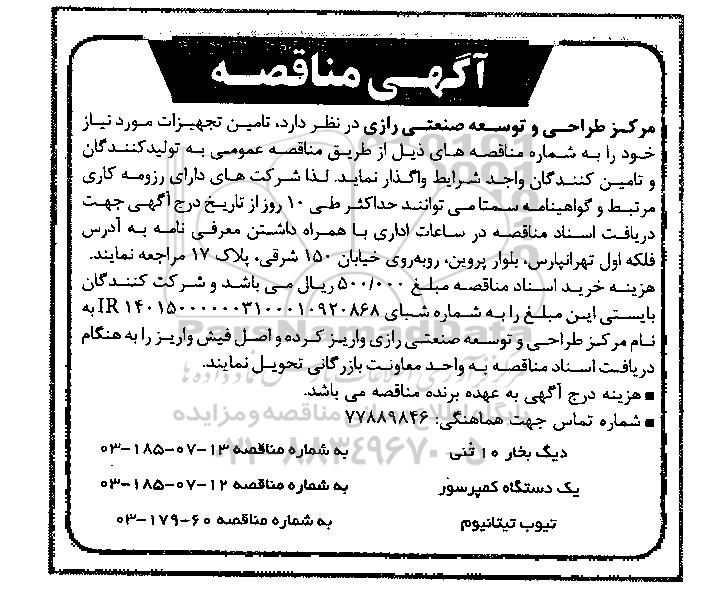 آگهی مناقصه
مرکز طراحی و توسعه صنعتی رازی در نظر دارد، تامین تجهیزات مورد نیاز
خود را به شماره مناقصه های ذیل از طریق مناقصه عمومی به تولیدکنندگان
و تامین کنندگان واجد شرایط واگذار نماید. لذا شرکت های دارای رزومه کاری
مرتبط و گواهینامه سمتا می توانند حداکثر طی ۱۰ روز از تاریخ درج آگهی جهت
دریافت اسناد مناقصه در ساعات اداری با همراه داشتن معرفی نامه به آدرس
فلکه اول تهرانپارس، بلوار پروین، روبه‌روی خیابان ۱۵۰ شرقی، پلاک ۱۷ مراجعه نمایند.
هزینه خرید اسناد مناقصه مبلغ ۵۰۰/۰۰۰ ریال می باشد و شرکت کنندگان
بایستی این مبلغ را به شماره شبای IR ۱۴۰۱۵۰۰۰۰۰۰۰۳۱۰۰۰۱۰۹۲۰۸۶۸ به
نام مرکز طراحی و توسعه صنعتی رازی واریز کرده و اصل فیش واریز را به هنگام
دریافت اسناد مناقصه به واحد معاونت بازرگانی تحویل نمایند.
■ هزینه درج آگهی به عهده برنده مناقصه می باشد.
■ شماره تماس جهت هماهنگی: ۷۷۸۸۹۸۴۶
دیگ بخار ۱۰ تُنی به شماره مناقصه ۱۳-۰۷-۱۸۵-۰۳
یک دستگاه کمپرسور به شماره مناقصه ۱۲-۰۷-۱۸۵-۰۳
تیوب تیتانیوم به شماره مناقصه ۶۰-۱۷۹-۰۳
ParsNamadData
پایگاه اطلاع رسانی مناقصه و مزایده
۰۲۱-۸۸۳۴۹۶۷۰-۵